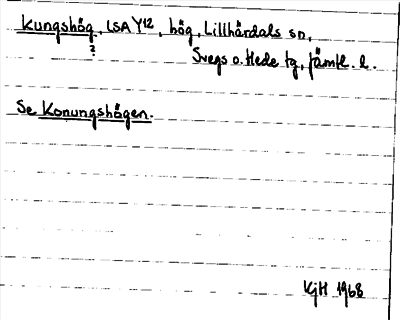 Kungshög, LSA Y12, hög, Lillhärdals sn,
?
Svegs o. Hede tg, Jämtl. l.
Se Konungshögen.
KjH 1968